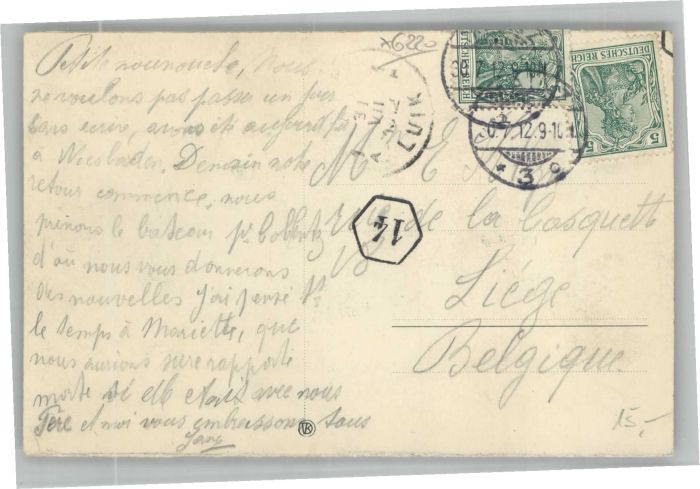 x6220
Petite nounouche, Nous
ne voulons pas passer un jour
sans ecrire, avons été aujourd'hui
à Wiesbaden. Demain notre
retour commence, nous
prenons le bateau pr Coblentz
d'où nous vous donnerons
des nouvelles j'ai pensé
le temps à Mariette, que
nous aurions
morte si elle etait avec nous
Père et moi vous embrassons tous
M
rue de la Casquette
Liége
Belgique
DEUTSCHES REICH
5
.7.12.9-10
* 3 c
LUIK
14
15,-